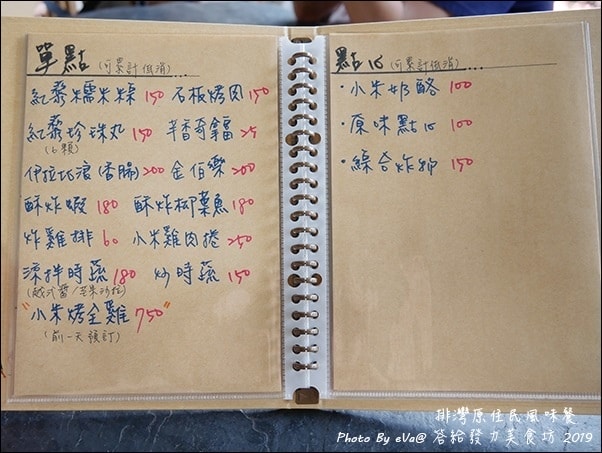 單點 (可累計低消)...
紅藜糯米粽 150 石板烤肉 150
紅藜珍珠丸 150
(6顆)
伊拉北浪(香腸) 200 金伯樂 200
酥炸蝦 180 酥炸柳葉魚 180
炸雞排 60 小朱雞肉捲 250
涼拌時蔬 180 炒時蔬 150
"小朱烤全雞 750"
(前一天預訂)
點心 (可累計低消)...
·小朱奶酪 100
·原味點心 100
·綜合炸物 150
排灣原住民風味餐
Photo By eVa@ 答給發力美食坊 2019